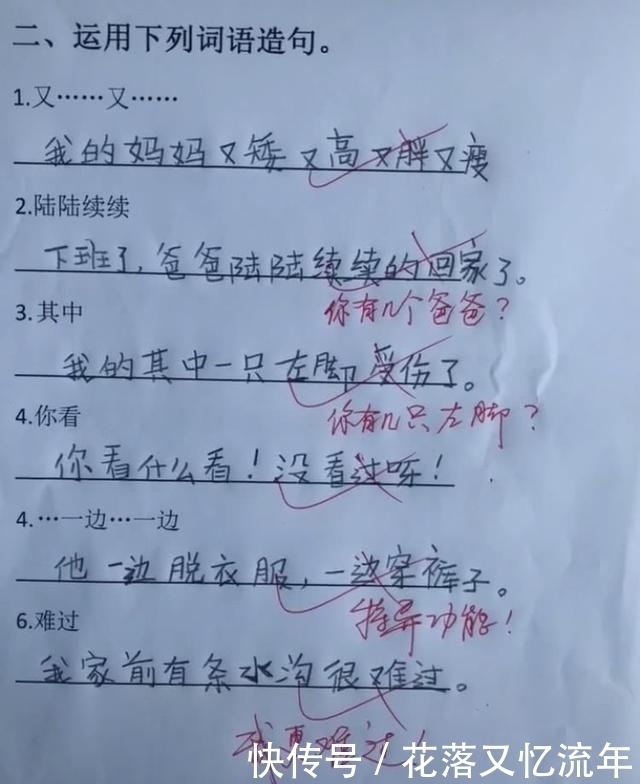 二、运用下列词语造句。
1.又……又……
我的妈妈又矮又高又胖又瘦
2.陆陆续续
下班了,爸爸陆陆续续的回家了。
你有几个爸爸?
3.其中
我的其中一只左脚受伤了。
你有几只左脚?
4.你看
你看什么看!没看过呀!
4.…一边…一边
他一边脱衣服,一边穿裤子。
特异功能!
6.难过
我家前有条水沟很难过。
我更难过!
快传号/花落又忆流年